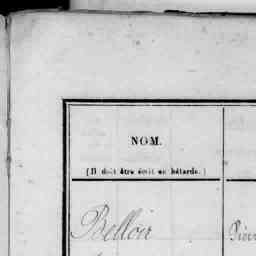 NOM.
(Il doit être écrit en bâtarde.)
Belloir